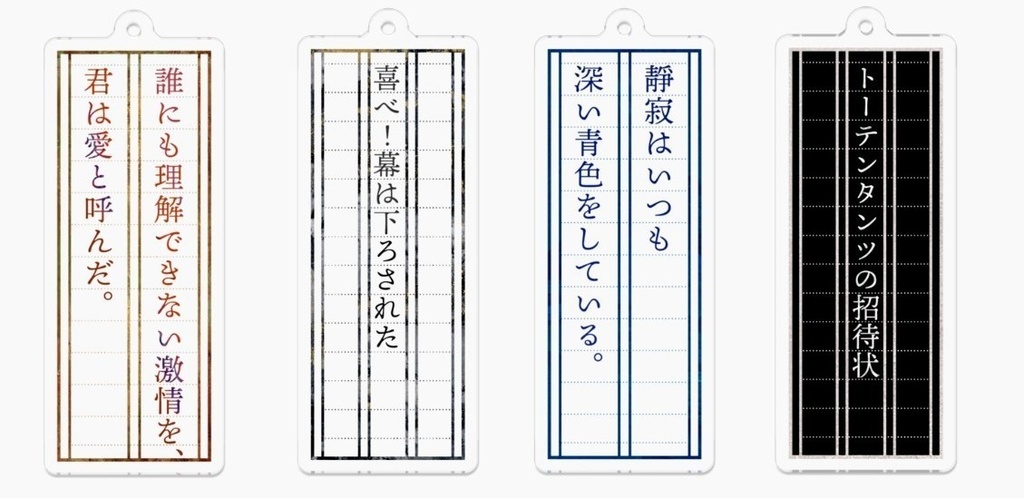 誰にも理解できない激情を、
君は愛と呼んだ。
喜べ！幕は下ろされた
靜寂はいつも
深い青色をしている。
トーテンタンツの招待状